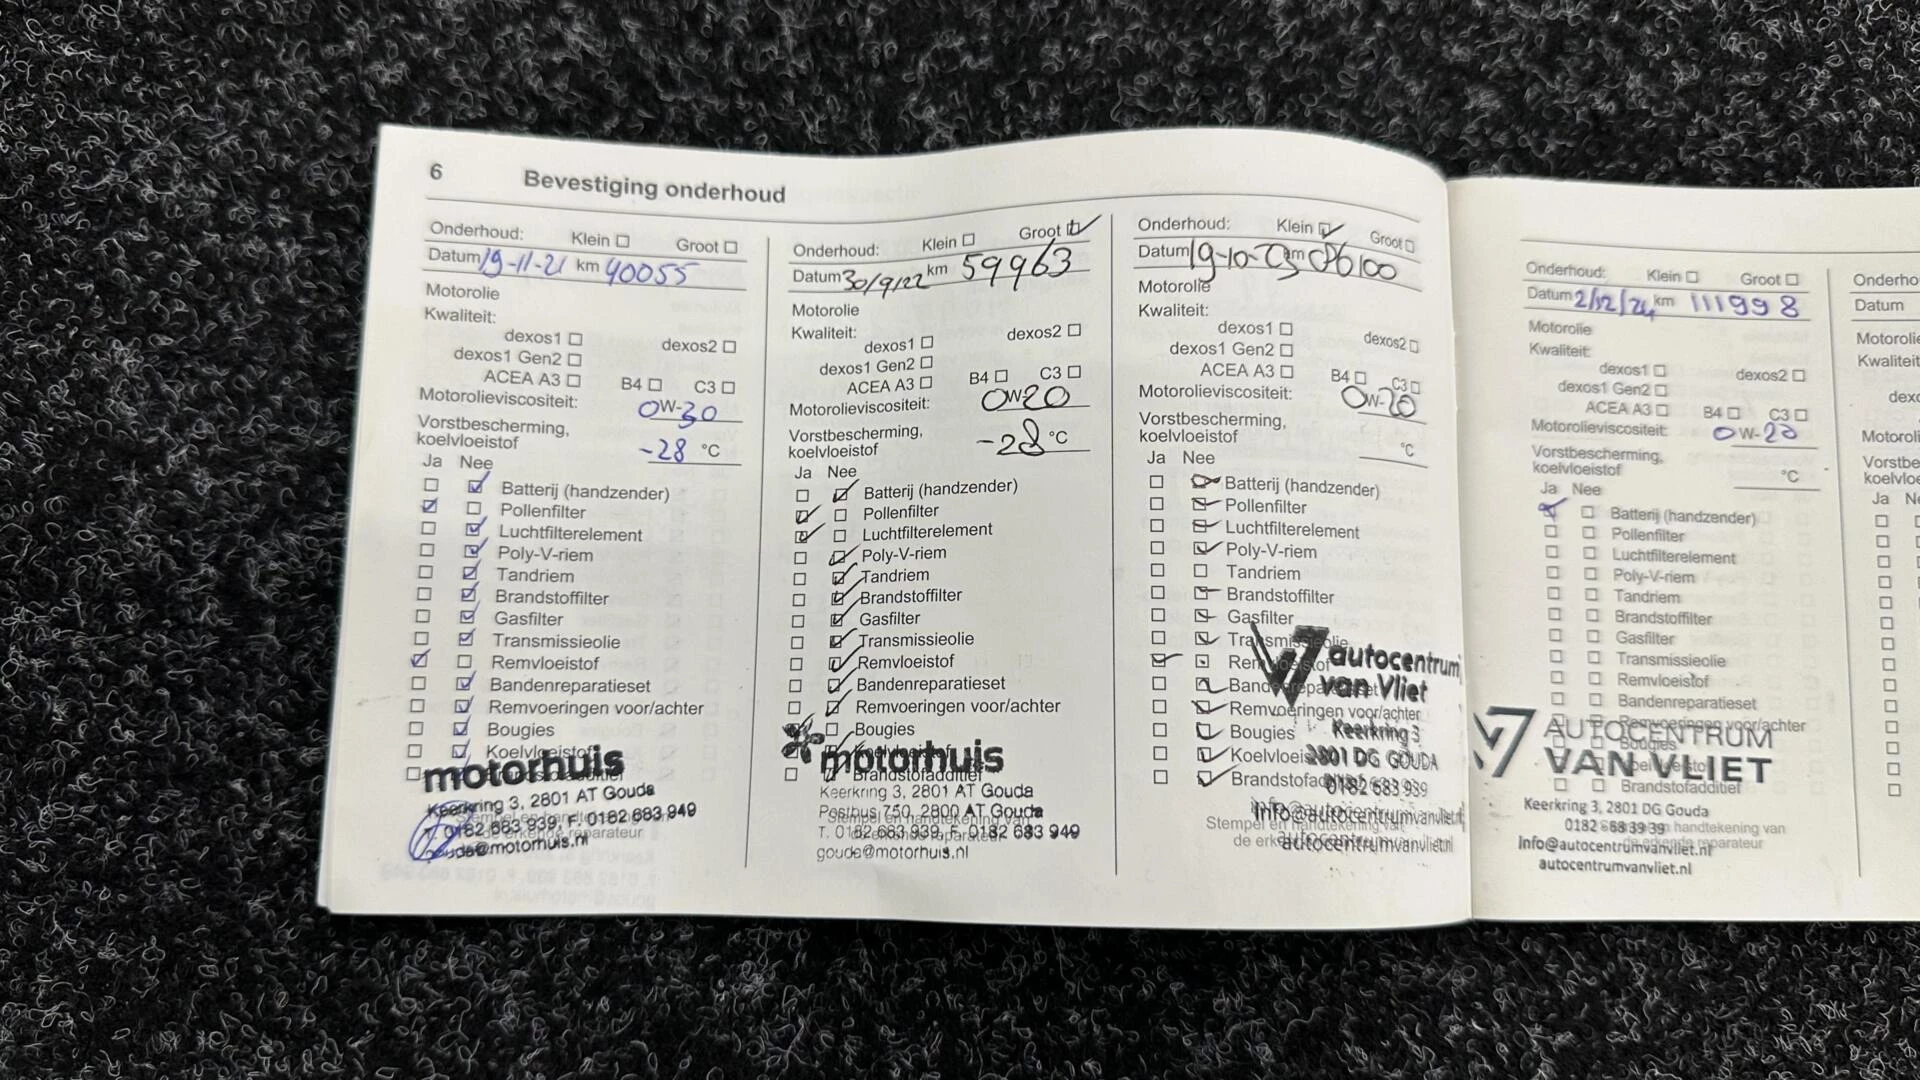 6 Bevestiging onderhoud
Onderhoud: Klein Groot
Datum 19-11-21 km 40055
Motorolie
Kwaliteit:
dexos1 dexos2
dexos1 Gen2
ACEA A3 B4 C3
Motorolieviscositeit: 0W-30
Vorstbescherming,
koelvloeistof -28 °C
Ja Nee
Batterij (handzender)
Pollenfilter
Luchtfilterelement
Poly-V-riem
Tandriem
Brandstoffilter
Gasfilter
Transmissieolie
Remvloeistof
Bandenreparatieset
Remvoeringen voor/achter
Bougies
Koelvloeistof
motorhuis
Keerkring 3, 2801 AT Gouda
T. 0182 683 939, F. 0182 683 949
gouda@motorhuis.nl
Onderhoud: Klein Groot
Datum 30/9/22 km 59963
Motorolie
Kwaliteit:
dexos1 dexos2
dexos1 Gen2
ACEA A3 B4 C3
Motorolieviscositeit: 0W-20
Vorstbescherming,
koelvloeistof -28 °C
Ja Nee
Batterij (handzender)
Pollenfilter
Luchtfilterelement
Poly-V-riem
Tandriem
Brandstoffilter
Gasfilter
Transmissieolie
Remvloeistof
Bandenreparatieset
Remvoeringen voor/achter
Bougies
Koelvloeistof
motorhuis
Brandstofadditief
Keerkring 3, 2801 AT Gouda
Postbus 750, 2800 AT Gouda
Stempel en handtekening van
T. 0182 683 939, F. 0182 683 949
gouda@motorhuis.nl
Onderhoud: Klein Groot
Datum 19-10-23 km 86100
Motorolie
Kwaliteit:
dexos1 dexos2
dexos1 Gen2
ACEA A3 B4 C3
Motorolieviscositeit: 0W-20
Vorstbescherming,
koelvloeistof °C
Ja Nee
Batterij (handzender)
Pollenfilter
Luchtfilterelement
Poly-V-riem
Tandriem
Brandstoffilter
Gasfilter
Transmissieolie
Remvloeistof
autocentrum
van Vliet
Bandenreparatieset
Remvoeringen voor/achter
Bougies
Keerkring 3
Koelvloeistof
2801 DG GOUDA
Brandstofadditief
0182 683 939
info@autocentrumvanvliet.nl
Stempel en handtekening van
autocentrumvanvliet.nl
Onderhoud: Klein Groot
Datum 2/12/24 km 111998
Motorolie
Kwaliteit:
dexos1 dexos2
dexos1 Gen2
ACEA A3 B4 C3
Motorolieviscositeit: 0W-20
Vorstbescherming,
koelvloeistof °C
Ja Nee
Batterij (handzender)
Pollenfilter
Luchtfilterelement
Poly-V-riem
Tandriem
Brandstoffilter
Gasfilter
Transmissieolie
Remvloeistof
Bandenreparatieset
Remvoeringen voor/achter
AUTOCENTRUM
Bougies
VAN VLIET
Brandstofadditief
Keerkring 3, 2801 DG Gouda
handtekening van
reparateur
Info@autocentrumvanvliet.nl
autocentrumvanvliet.nl
Datum
Ja